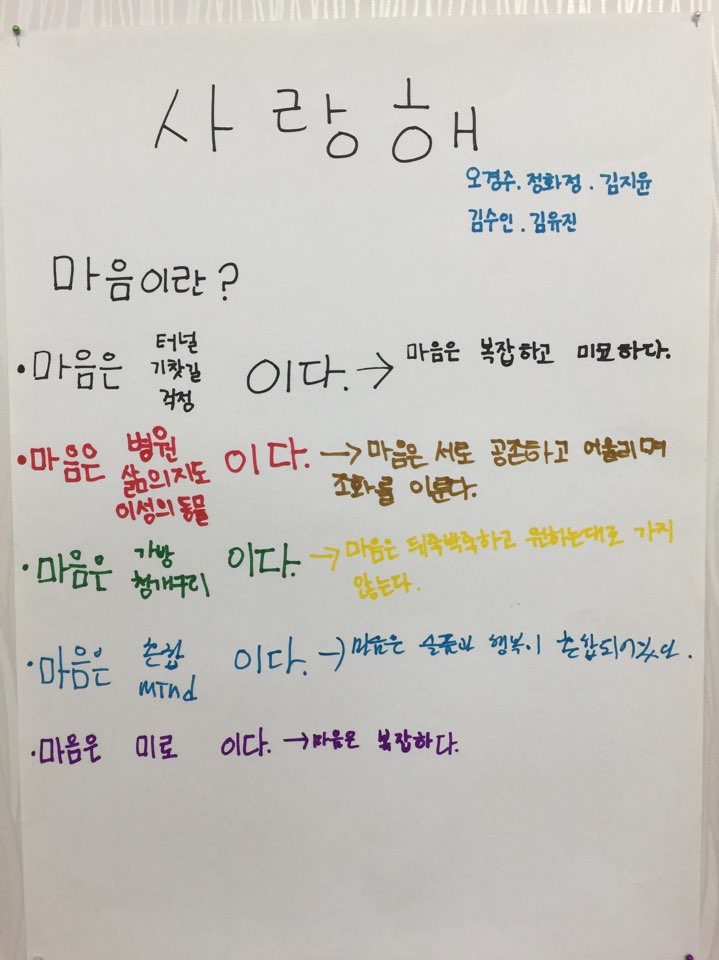 사랑해
오경주. 정화정. 김지윤
김수인. 김유진
마음이란?
•마음은 터널 기찻길 걱정 이다. → 마음은 복잡하고 미묘하다.
•마음은 병원 삶의지도 이성의동물 이다. → 마음은 서로 공존하고 어울리며
조화를 이룬다.
•마음은 가방 청개구리 이다. → 마음은 뒤죽박죽하고 원하는대로 가지
않는다.
•마음은 혼합 mind 이다. → 마음은 슬픔과 행복이 혼합되어있다.
•마음은 미로 이다. → 마음은 복잡하다.